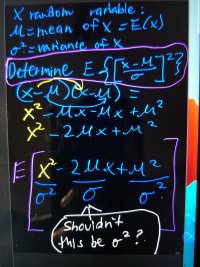 X random variable:
μ = mean of X = E(X)
σ² = variance of X
Determine E{[X-μ/σ]²}
(x-μ)(x-μ) =
x² - μx - μx + μ²
x² - 2μx + μ²
E[x²/σ² - 2μx/σ + μ²/σ²]
Shouldn't
this be σ²?